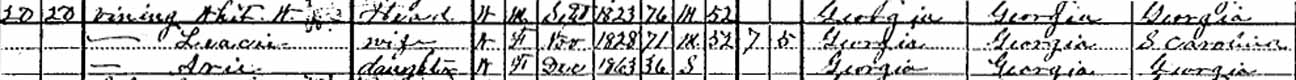 20 20 Vining Whit H. Head W M Sept 1823 76 M 52 Georgia Georgia Georgia
— Leacie wife W F Nov 1828 71 M 52 7 5 Georgia Georgia S Carolina
— Arie daughter W F Dec 1863 36 S Georgia Georgia Georgia